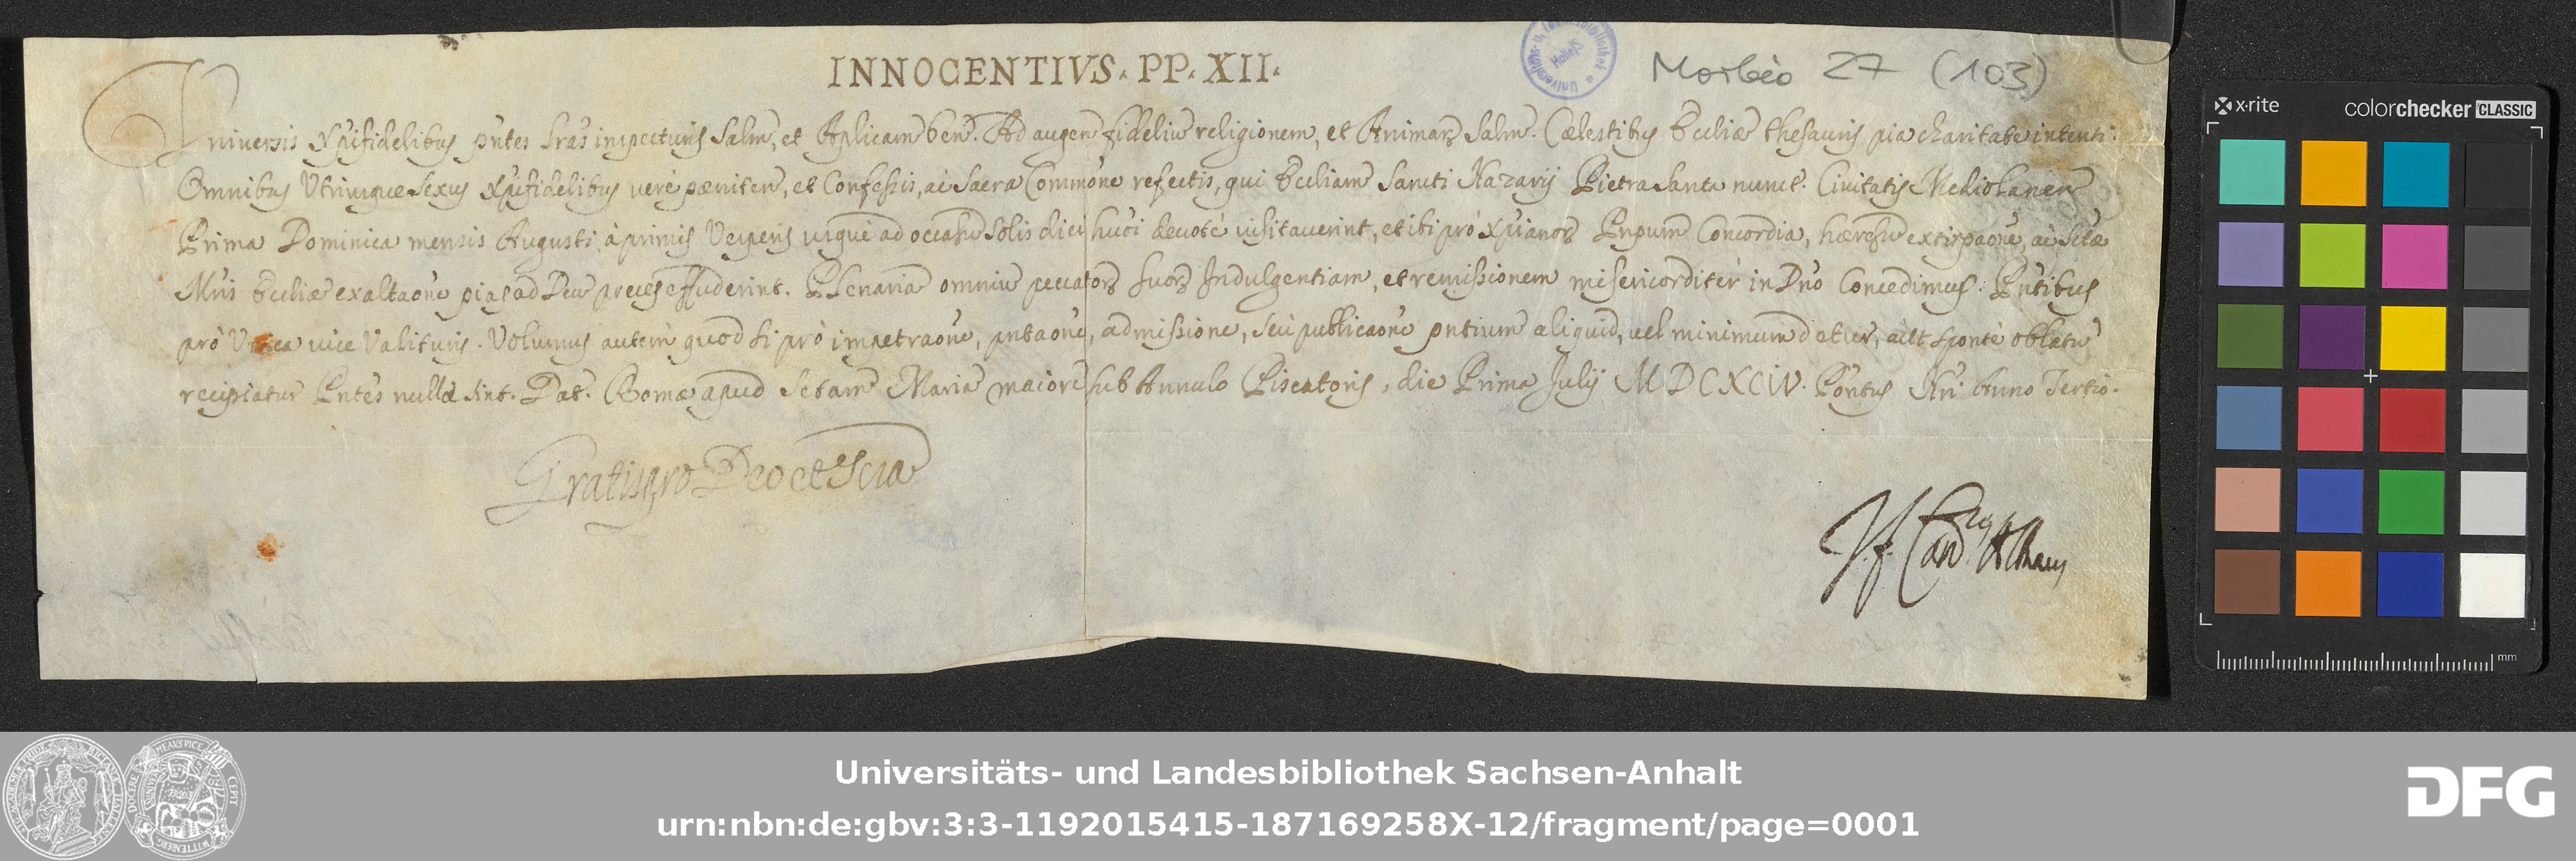 INNOCENTIVS. PP. XII.
Morbio 27 (103)
Universis Xpifidelibus pntes lras inspecturis Salm, et Aplicam ben. Ad augen fideliu religionem, et Animarz Salm. Cælestibus Eccliæ thesauris pia charitate intenti:
Omnibus Utriusque Sexus Xpifidelibus verè pæniten, et Confessis, ac Sacra Commone refectis, qui Eccliam Sancti Nazarij Pietra Santa nunc. Civitatis Mediolanen
Prima Dominica mensis Augusti à primis Vesperis usque ad occasu Solis diei hui devotè visitaverint, et ibi prò Xpianorz Pnpum Concordia, hæresu extirpaone, ac Sctæ
Mris Eccliæ exaltaone pias ad Deu preces effuderint. Plenaria omniu peccatorz Suorz Indulgentiam, et remissionem misericorditèr in Dno Concedimus. Pntibus
prò Unica vice Valituris. Volumus autem quod si prò impetraone, pntaone, admissione, seu publicaone pntium aliquid, vel minimum detur, aut sponte oblatu
recipiatur Pntes nullæ sint. Dat. Romæ apud Sctam Maria maiore sub Annulo Piscatoris, die Prima Julij MDCXCIV. Pontus Nri Anno Tertio.
Gratis pro Deo et Scra
J. f. Card. Albanus
x·rite colorchecker CLASSIC
mm
Universitäts- und Landesbibliothek Sachsen-Anhalt
urn:nbn:de:gbv:3:3-1192015415-187169258X-12/fragment/page=0001
DFG